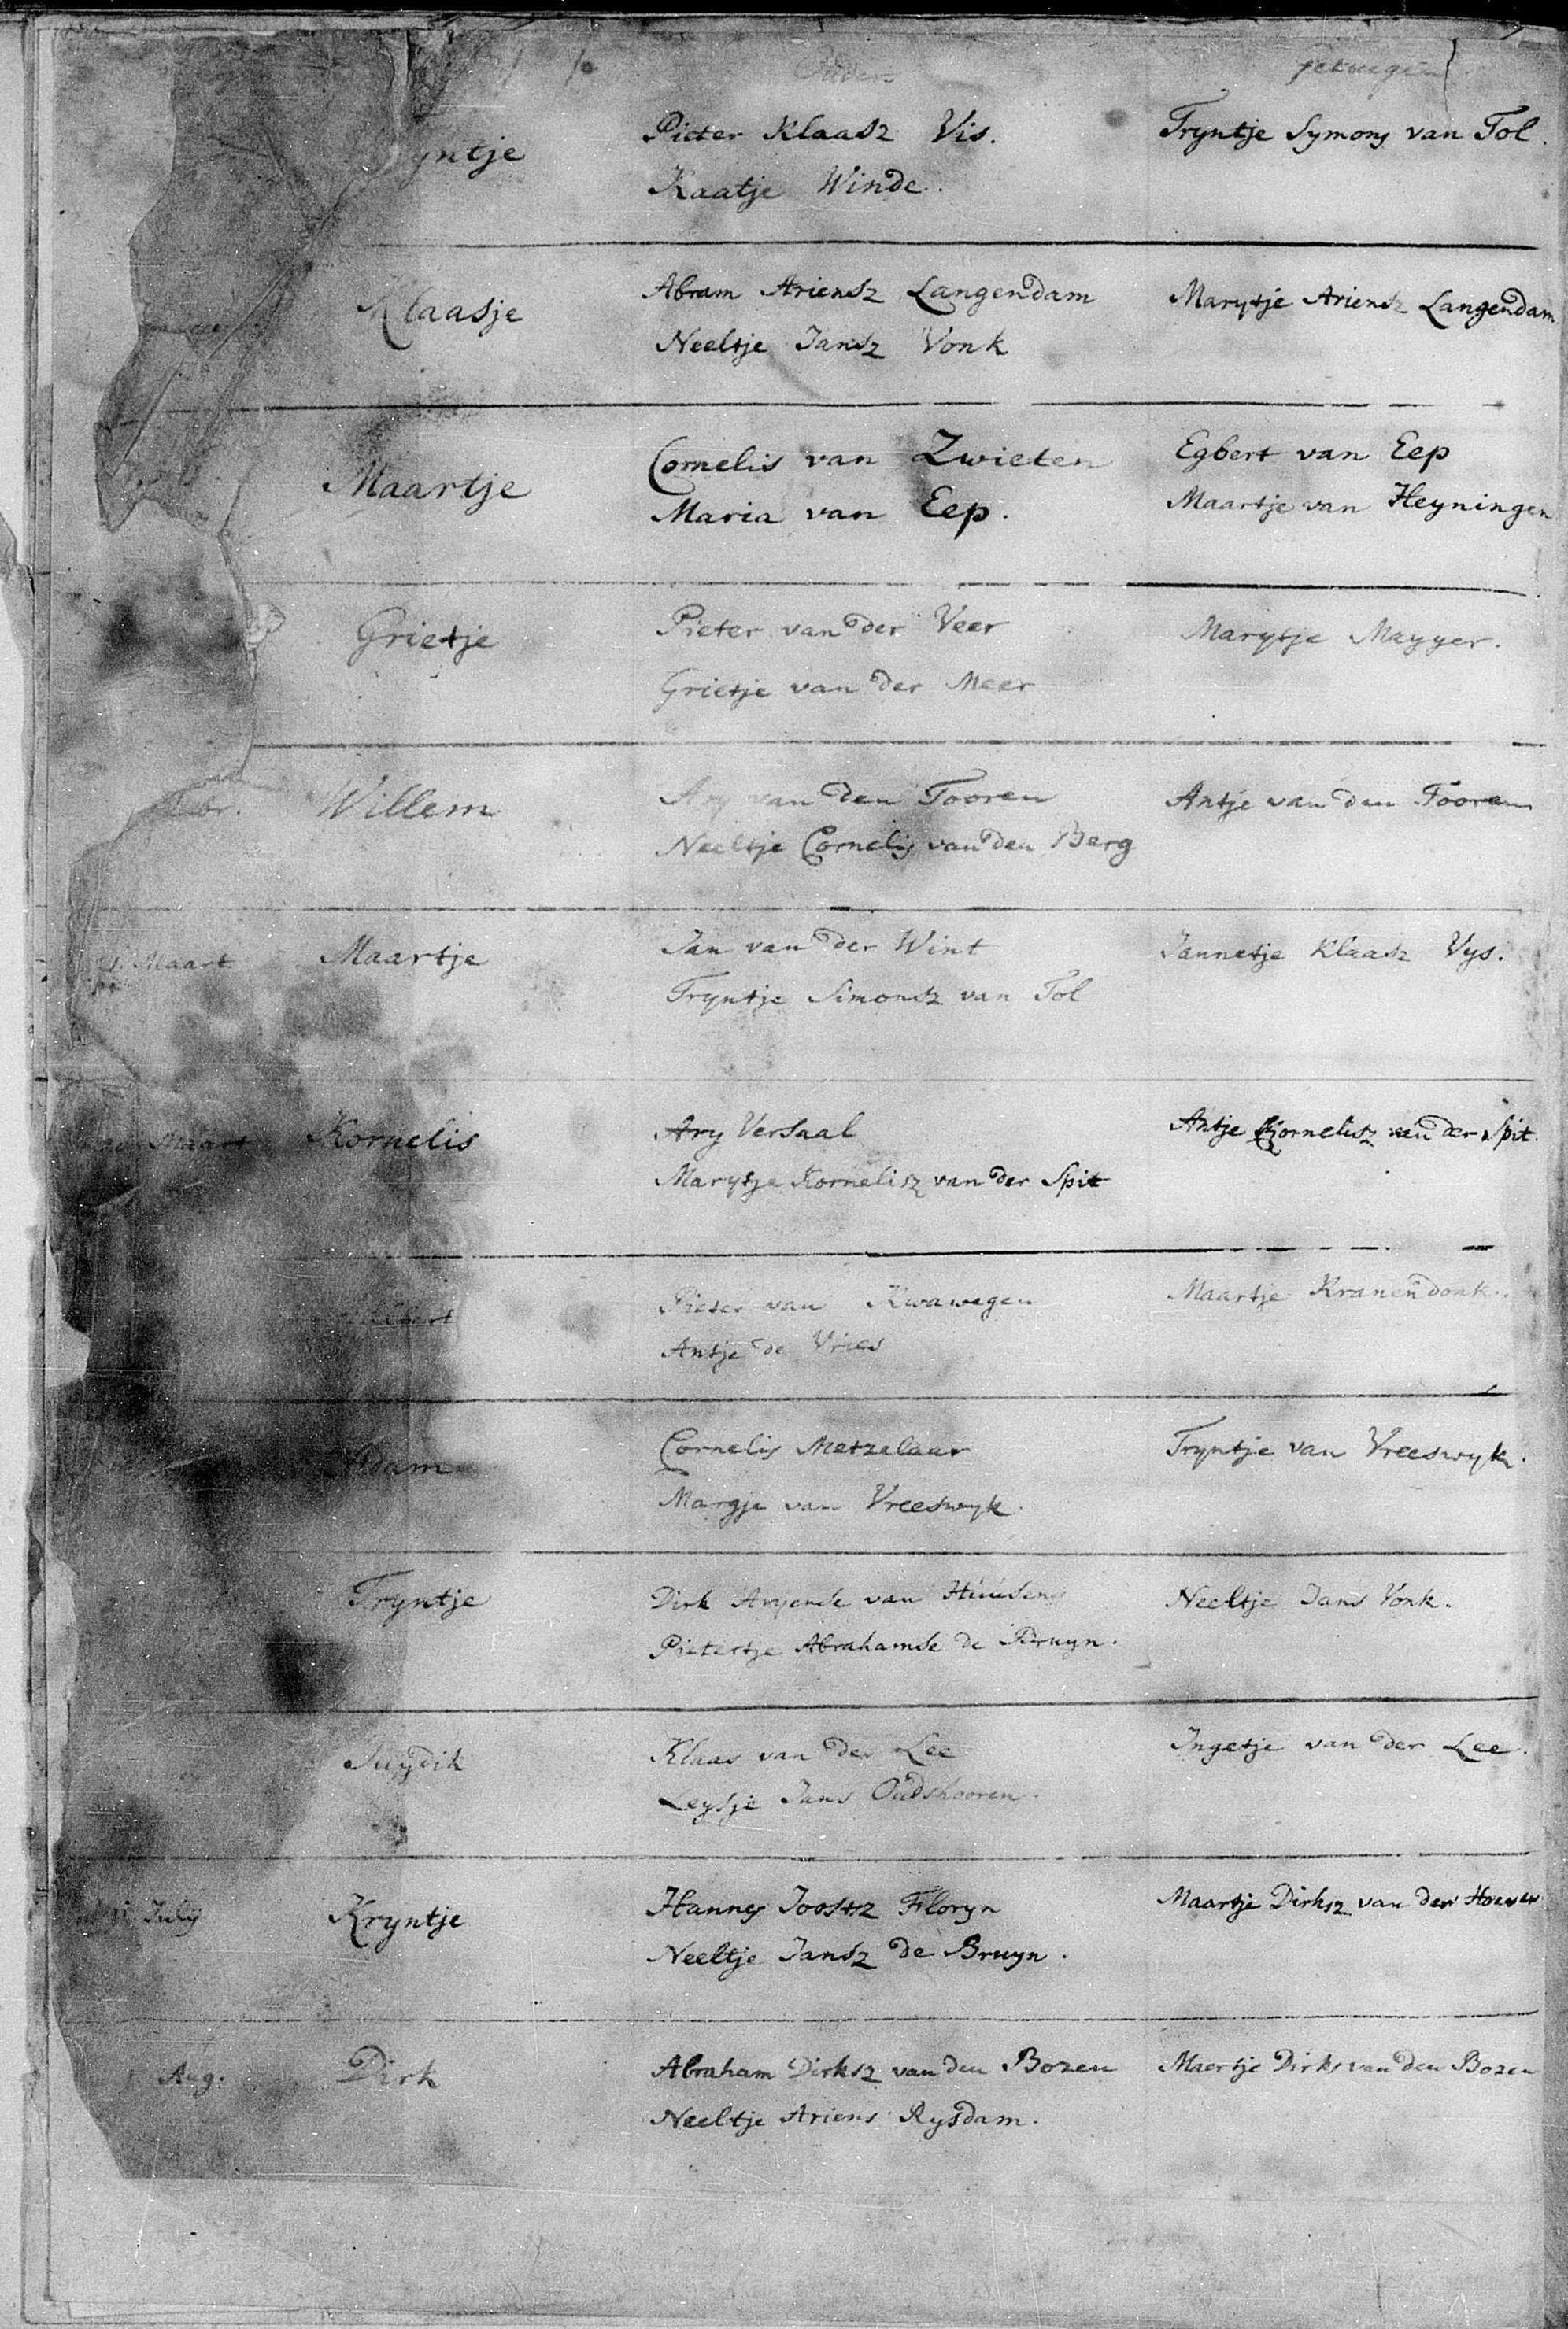 Ouders
getuigen
yntje
Pieter Klaasz Vis.
Tryntje Symons van Tol.
Kaatje Winde.
Klaasje
Abram Ariensz Langendam
Marytje Ariensz Langendam
Neeltje Jansz Vonk
Maartje
Cornelis van Zwieten
Egbert van Eep
Maria van Eep.
Maartje van Heyningen
Grietje
Pieter van der Veer
Marytje Mayyer.
Grietje van der Meer
Willem
Ary van den Tooren
Antje van den Tooren
Neeltje Cornelis van den Berg
Maart
Maartje
Jan van der Wint
Jannetje Klaasz Vys.
Tryntje Simonsz van Tol
Maart
Kornelis
Ary Versaal
Antje Kornelisz van der Spit.
Marytje Kornelisz van der Spit
Pieter van Kwawegen
Maartje Kranendonk.
Antje de Vries
Adam
Cornelis Metzelaar
Tryntje van Vreeswyk.
Margje van Vreeswyk.
Tryntje
Dirk Aryense van Huusen
Neeltje Jans Vonk.
Pietertje Abrahamse de Bruyn.
Klaas van der Lee
Ingetje van der Lee.
Leysje Jans Oudshooren.
July
Kryntje
Hannes Joostz Floryn
Maartje Dirksz van der Hoeven
Neeltje Jansz de Bruyn.
Aug.
Dirk
Abraham Dirksz van den Bozen
Maertje Dirks van den Bozen
Neeltje Ariens Rysdam.